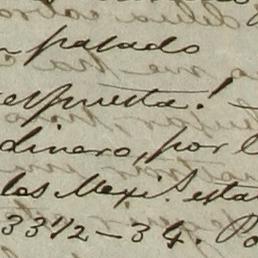 pasado
respuesta! –
dinero, por l
los Mexi.s esta
33 1/2 – 34. Po